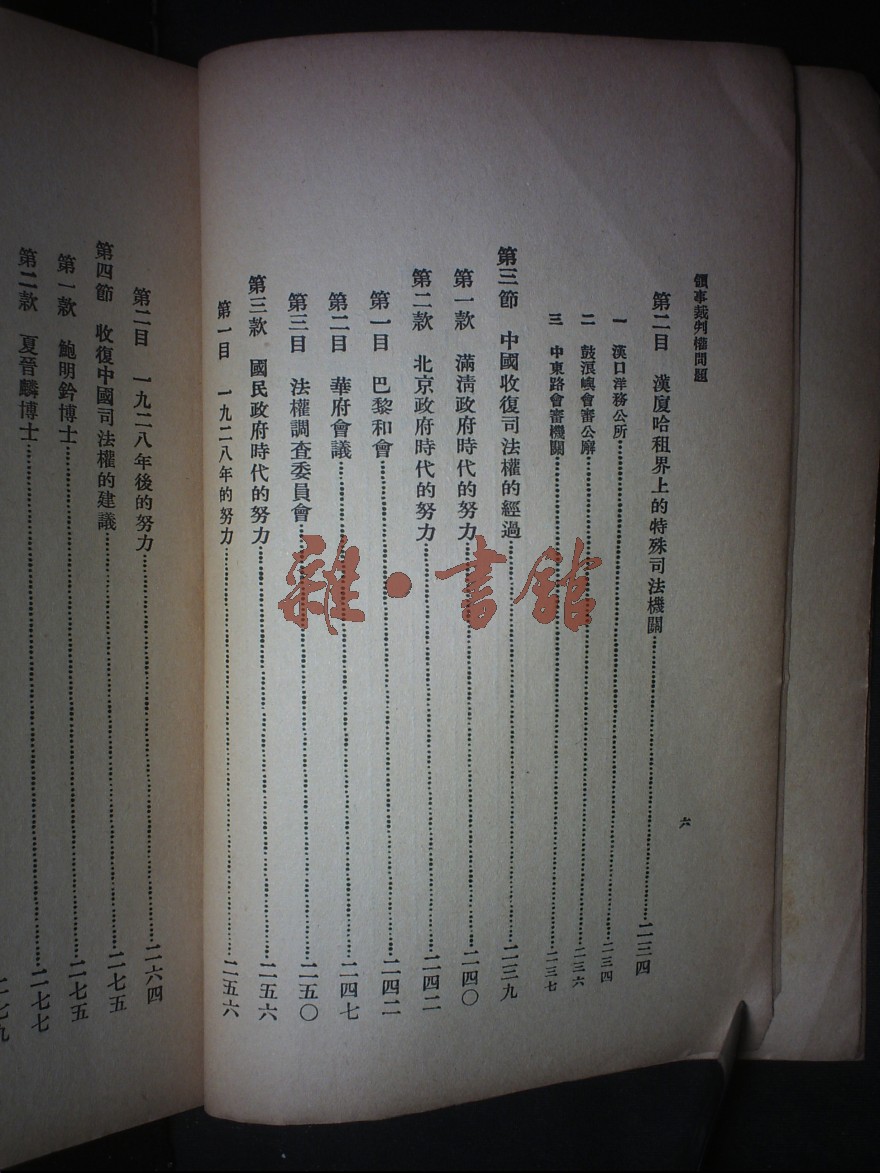 領事裁判權問題
六
第二目 漢廈哈租界上的特殊司法機關……二三四
一 漢口洋務公所……二三四
二 鼓浪嶼會審公廨……二三六
三 中東路會審機關……二三七
第三節 中國收復司法權的經過……二三九
第一款 滿清政府時代的努力……二四〇
第二款 北京政府時代的努力……二四二
第一目 巴黎和會……二四二
第二目 華府會議……二四七
第三目 法權調查委員會……二五〇
第三款 國民政府時代的努力……二五六
第一目 一九二八年的努力……二五六
第二目 一九二八年後的努力……二六四
第四節 收復中國司法權的建議……二七五
第一款 鮑明鈐博士……二七五
第二款 夏晉麟博士……二七七
二七九
雜·書館